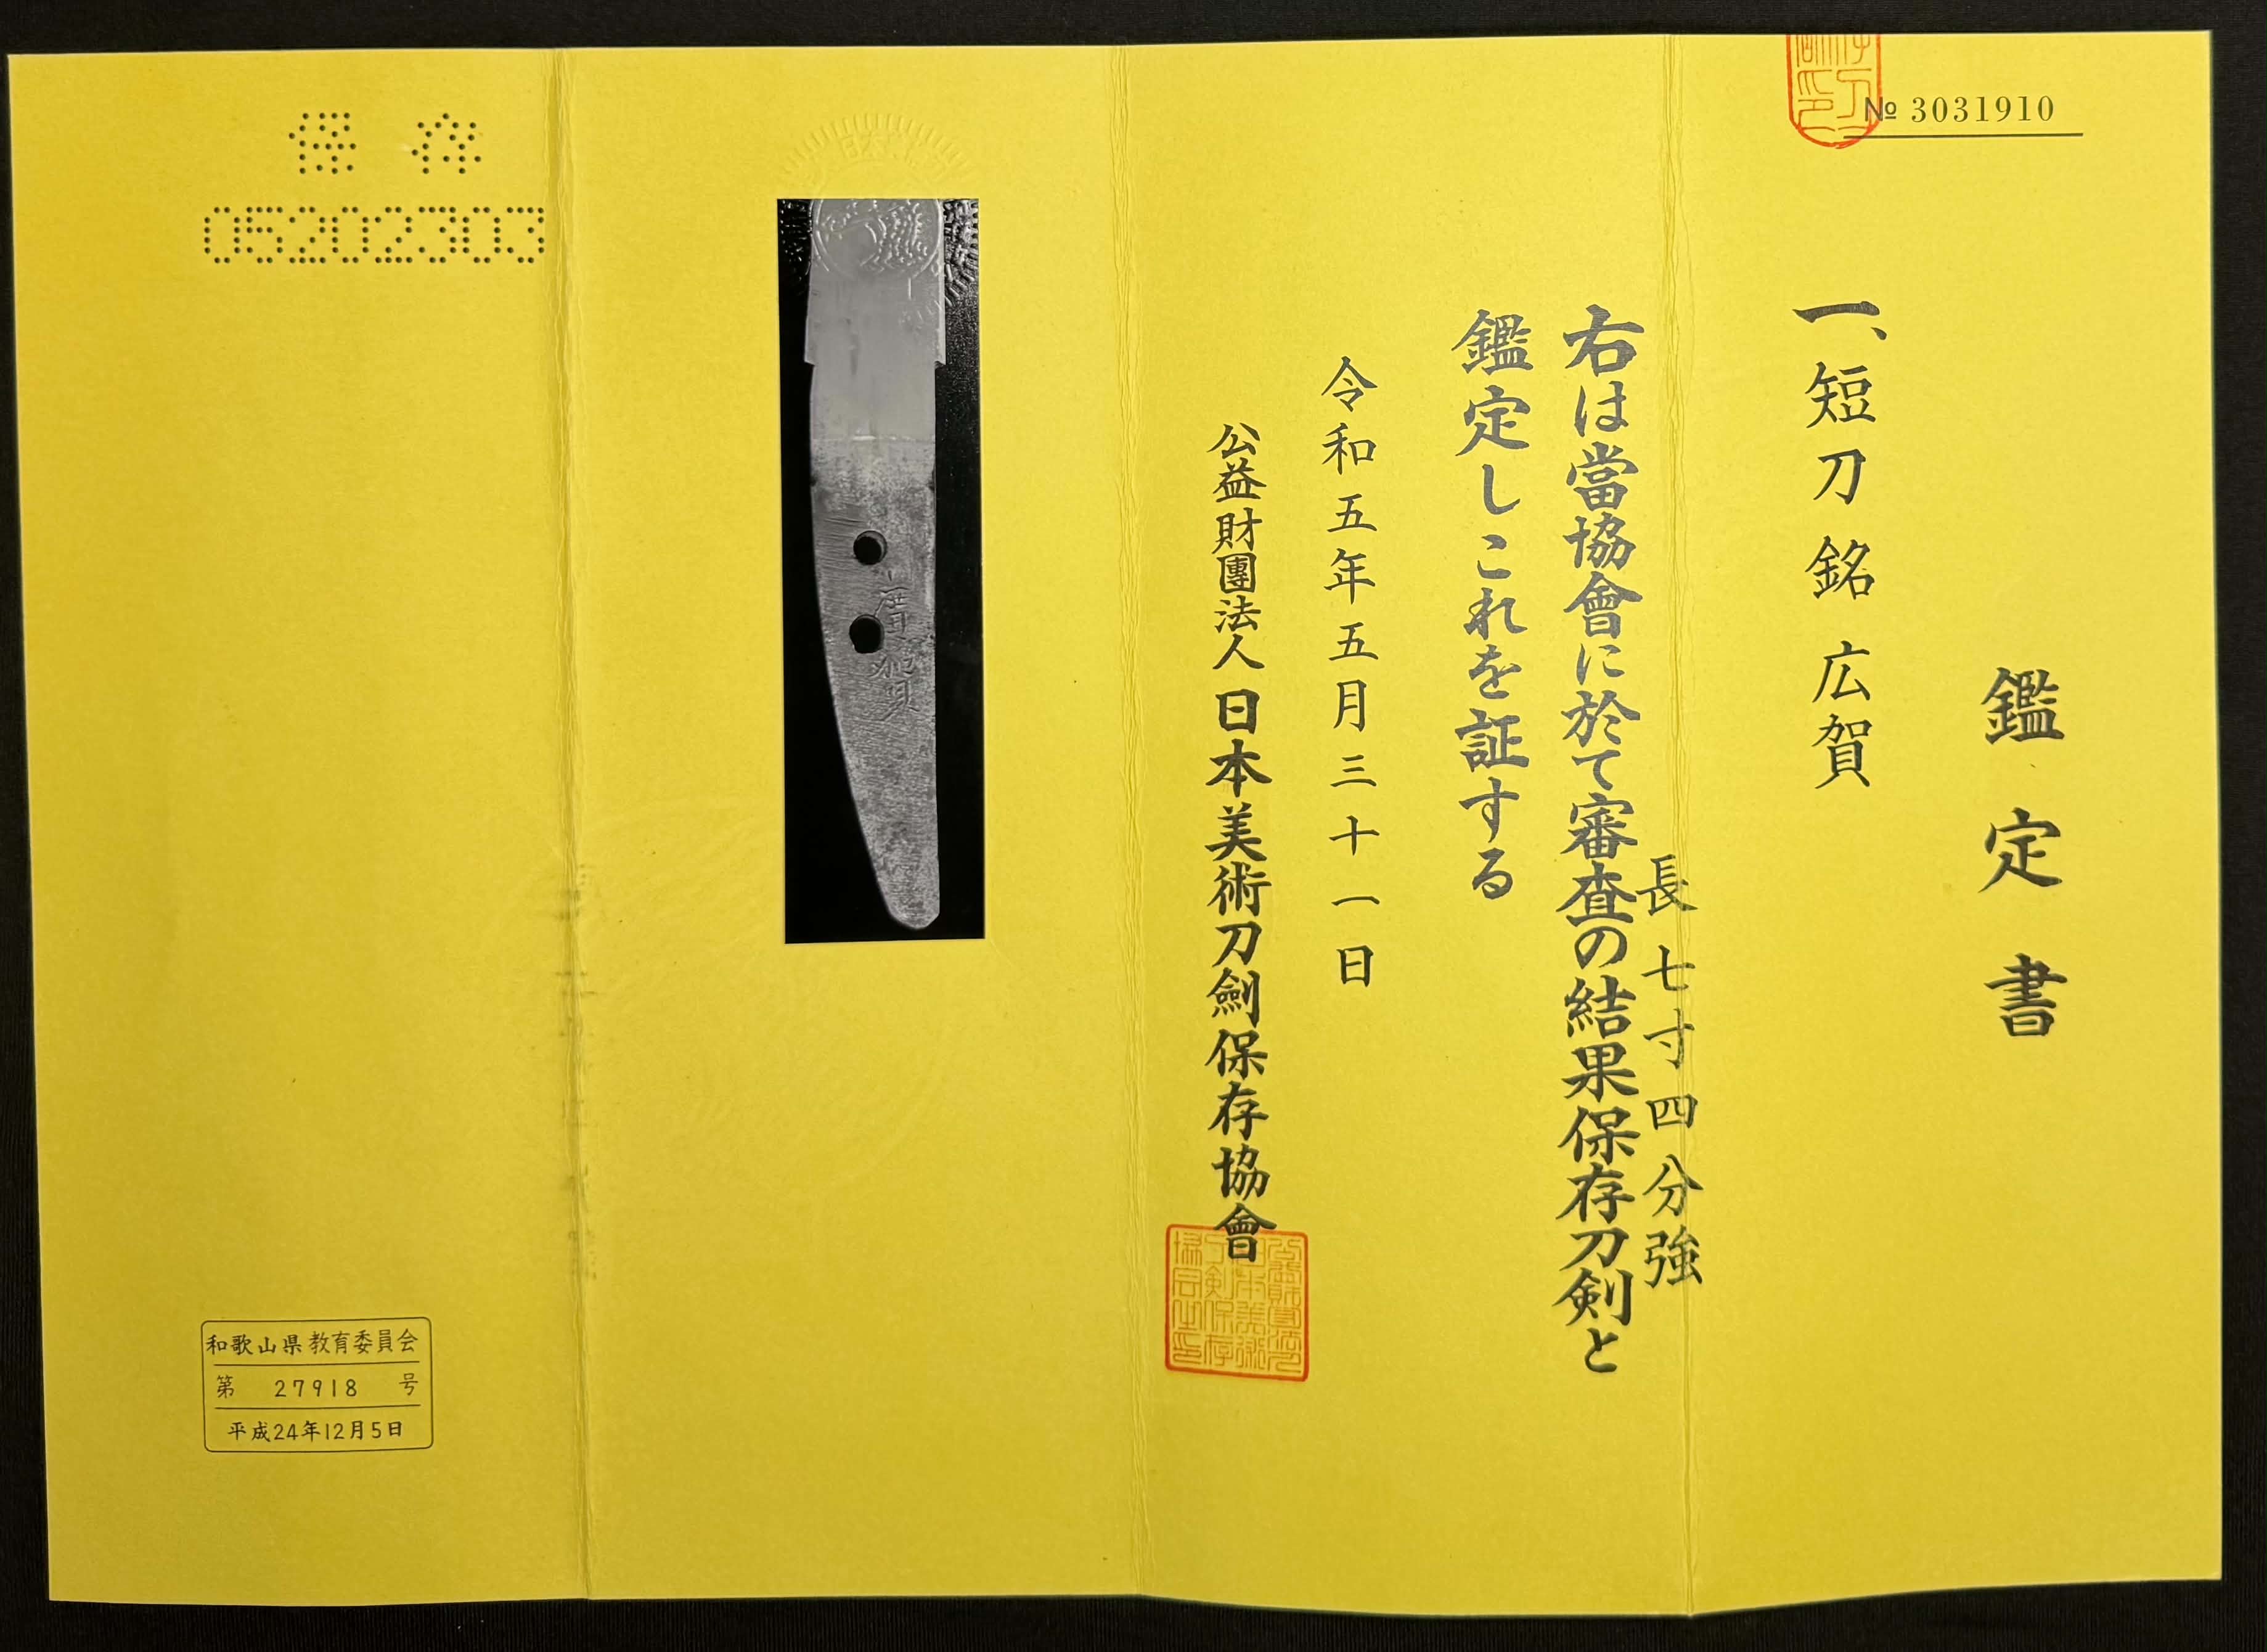 № 3031910
鑑定書
一、短刀 銘 広賀
長七寸四分強
右は當協會に於て審査の結果保存刀剣と
鑑定しこれを証する
令和五年五月三十一日
公益財團法人 日本美術刀劍保存協會
保存
05202303
和歌山県教育委員会
第 27918 号
平成24年12月5日